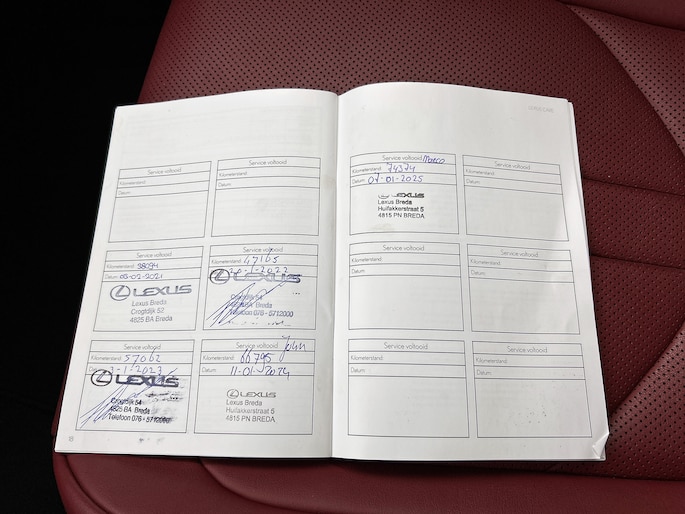 Service voltooid
Kilometerstand:
Datum:
Service voltooid
Kilometerstand:
Datum:
Service voltooid
Kilometerstand: 38094
Datum: 05-02-2021
LEXUS
Lexus Breda
Crogtdijk 52
4825 BA Breda
Service voltooid
Kilometerstand: 47165
20-1-2022
LEXUS
Crogtdijk 54
Breda
Telefoon 076 - 5712000
Service voltooid
Kilometerstand: 57062
-1-2023
LEXUS
Crogtdijk 54
4825 BA Breda
Telefoon 076 - 5712000
Service voltooid John
Kilometerstand: 66795
Datum: 11-01-2024
LEXUS
Lexus Breda
Huifakkerstraat 5
4815 PN BREDA
Service voltooid Marco
Kilometerstand: 74374
Datum: 07-01-2025
LEXUS
Lexus Breda
Huifakkerstraat 5
4815 PN BREDA
Service voltooid
Kilometerstand:
Datum:
Service voltooid
Kilometerstand:
Datum:
Service voltooid
Kilometerstand:
Datum:
Service voltooid
Kilometerstand:
Datum:
Service voltooid
Kilometerstand:
Datum: